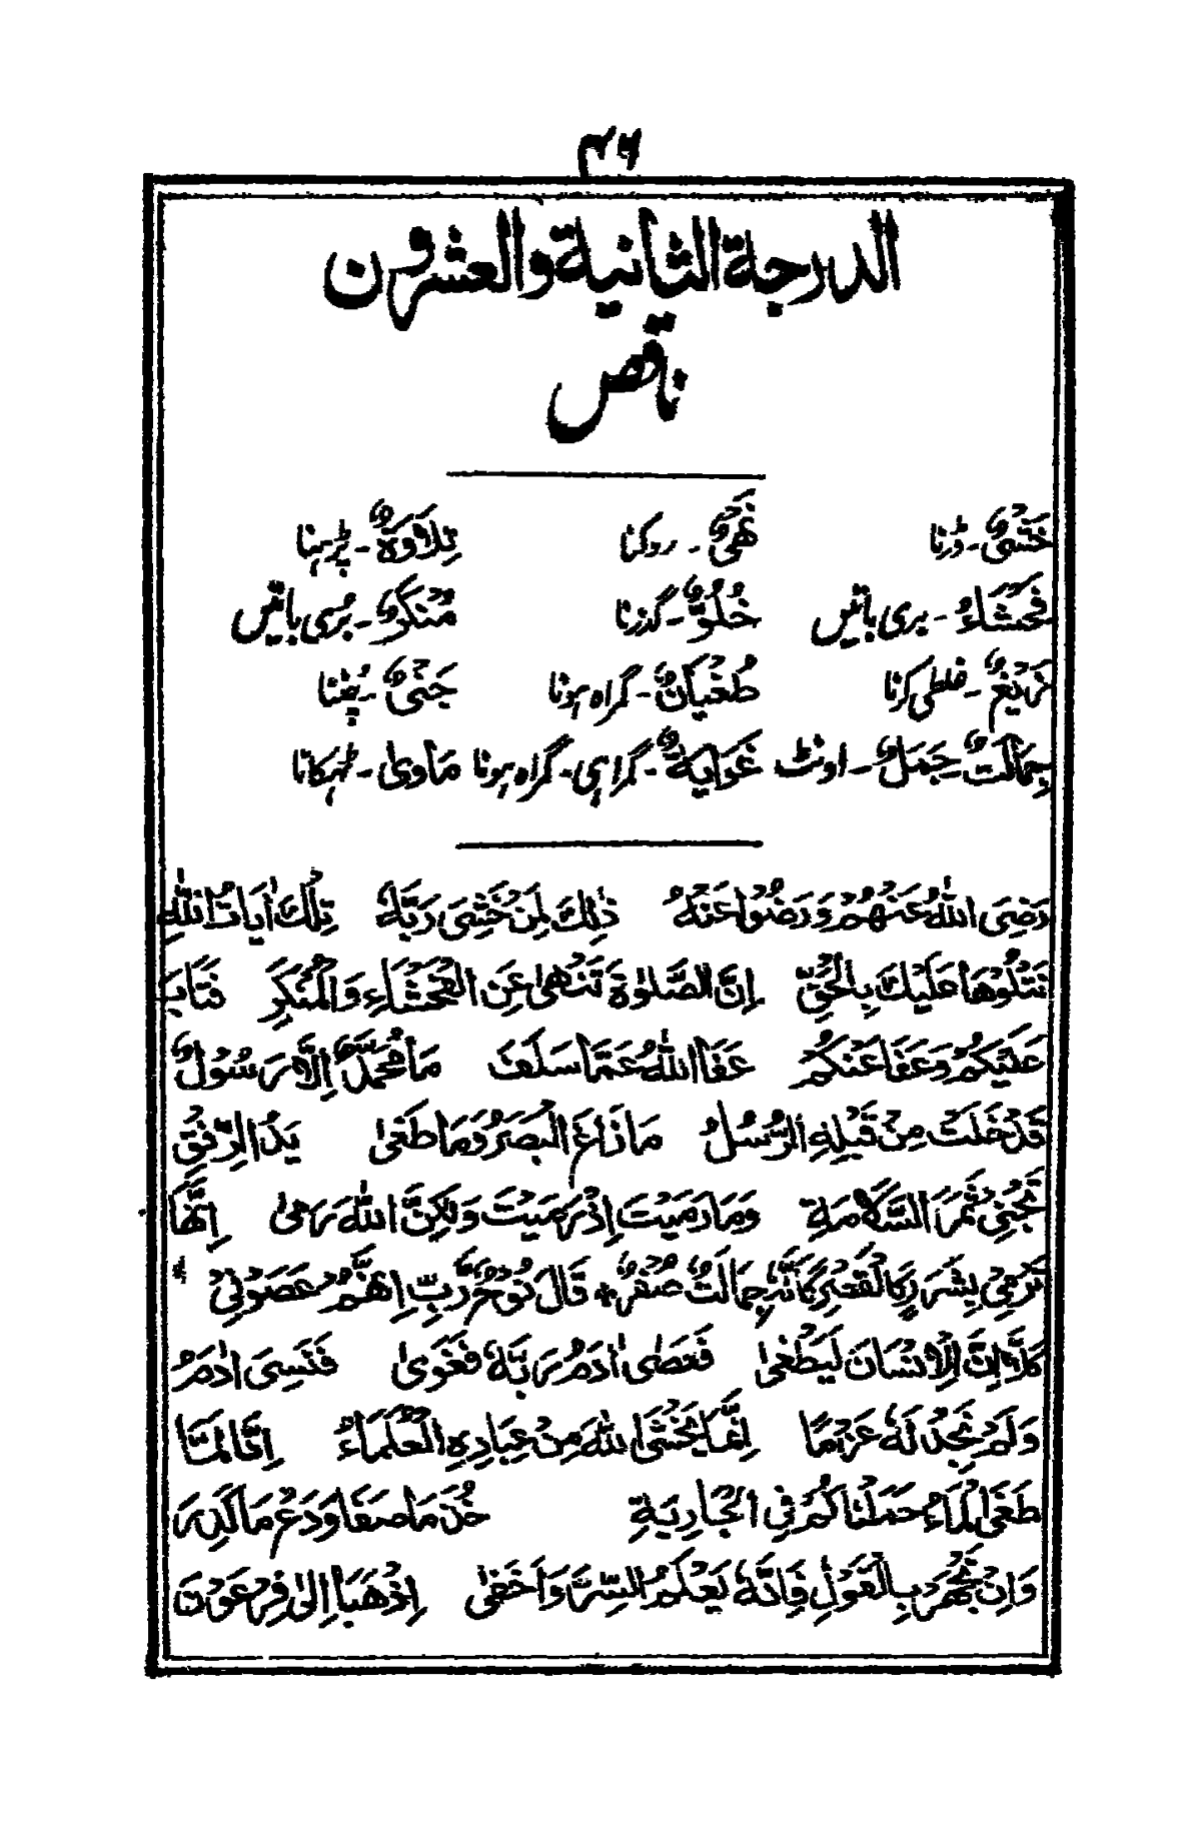 ۴۶
الدرجة الثانية والعشرون
ناقص
خَشْیٌ - ڈرنا نَھْیٌ - روکنا تِلَاوَةٌ - پڑہنا
فَحْشَاءُ - بری باتیں خُلُوٌّ - گذرنا مُنْکَرٌ - بُری باتیں
زَیْغٌ - غلطی کرنا طُغْیَانٌ - گمراہ ہونا جَنْیٌ - چُننا
جِمَالَتٌ - جَمَلٌ - اونٹ غَوَایَةٌ - گمراہی - گمراہ ہونا مَاوٰی - ٹہکانا
رَضِیَ اللّٰهُ عَنْهُمْ وَرَضُوْا عَنْهُ ذٰلِكَ لِمَنْ خَشِیَ رَبَّهٗ تِلْكَ اٰیَاتُ اللّٰهِ
نَتْلُوْهَا عَلَیْكَ بِالْحَقِّ اِنَّ الصَّلٰوةَ تَنْهٰی عَنِ الْفَحْشَاءِ وَالْمُنْكَرِ فَتَابَ
عَلَیْكُمْ وَعَفَا عَنْكُمْ عَفَا اللّٰهُ عَمَّا سَلَفَ مَا مُحَمَّدٌ اِلَّا رَسُوْلٌ
قَدْ خَلَتْ مِنْ قَبْلِهِ الرُّسُلُ مَا زَاغَ الْبَصَرُ وَمَا طَغٰی یَدُ الرِّفْقِ
تَجْنِیْ ثَمَرَ السَّلَامَةِ وَمَا رَمَیْتَ اِذْ رَمَیْتَ وَلٰكِنَّ اللّٰهَ رَمٰی اِنَّهَا
تَرْمِیْ بِشَرَرٍ كَالْقَصْرِ كَاَنَّهٗ جِمَالَتٌ صُفْرٌ * قَالَ نُوْحٌ رَّبِّ اِنَّهُمْ عَصَوْنِیْ
كَلَّا اِنَّ الْاِنْسَانَ لَیَطْغٰی فَعَصٰی اٰدَمُ رَبَّهٗ فَغَوٰی فَنَسِیَ اٰدَمُ
وَلَمْ نَجِدْ لَهٗ عَزْمًا اِنَّمَا یَخْشَی اللّٰهَ مِنْ عِبَادِهِ الْعُلَمَاءُ اِنَّا لَمَّا
طَغَی الْمَاءُ حَمَلْنَاكُمْ فِی الْجَارِیَةِ خُذْ مَا صَفَا وَدَعْ مَا كَدِرَ
وَاِنْ تَجْهَرْ بِالْقَوْلِ فَاِنَّهٗ یَعْلَمُ السِّرَّ وَاَخْفٰی اِذْهَبَا اِلٰی فِرْعَوْنَ